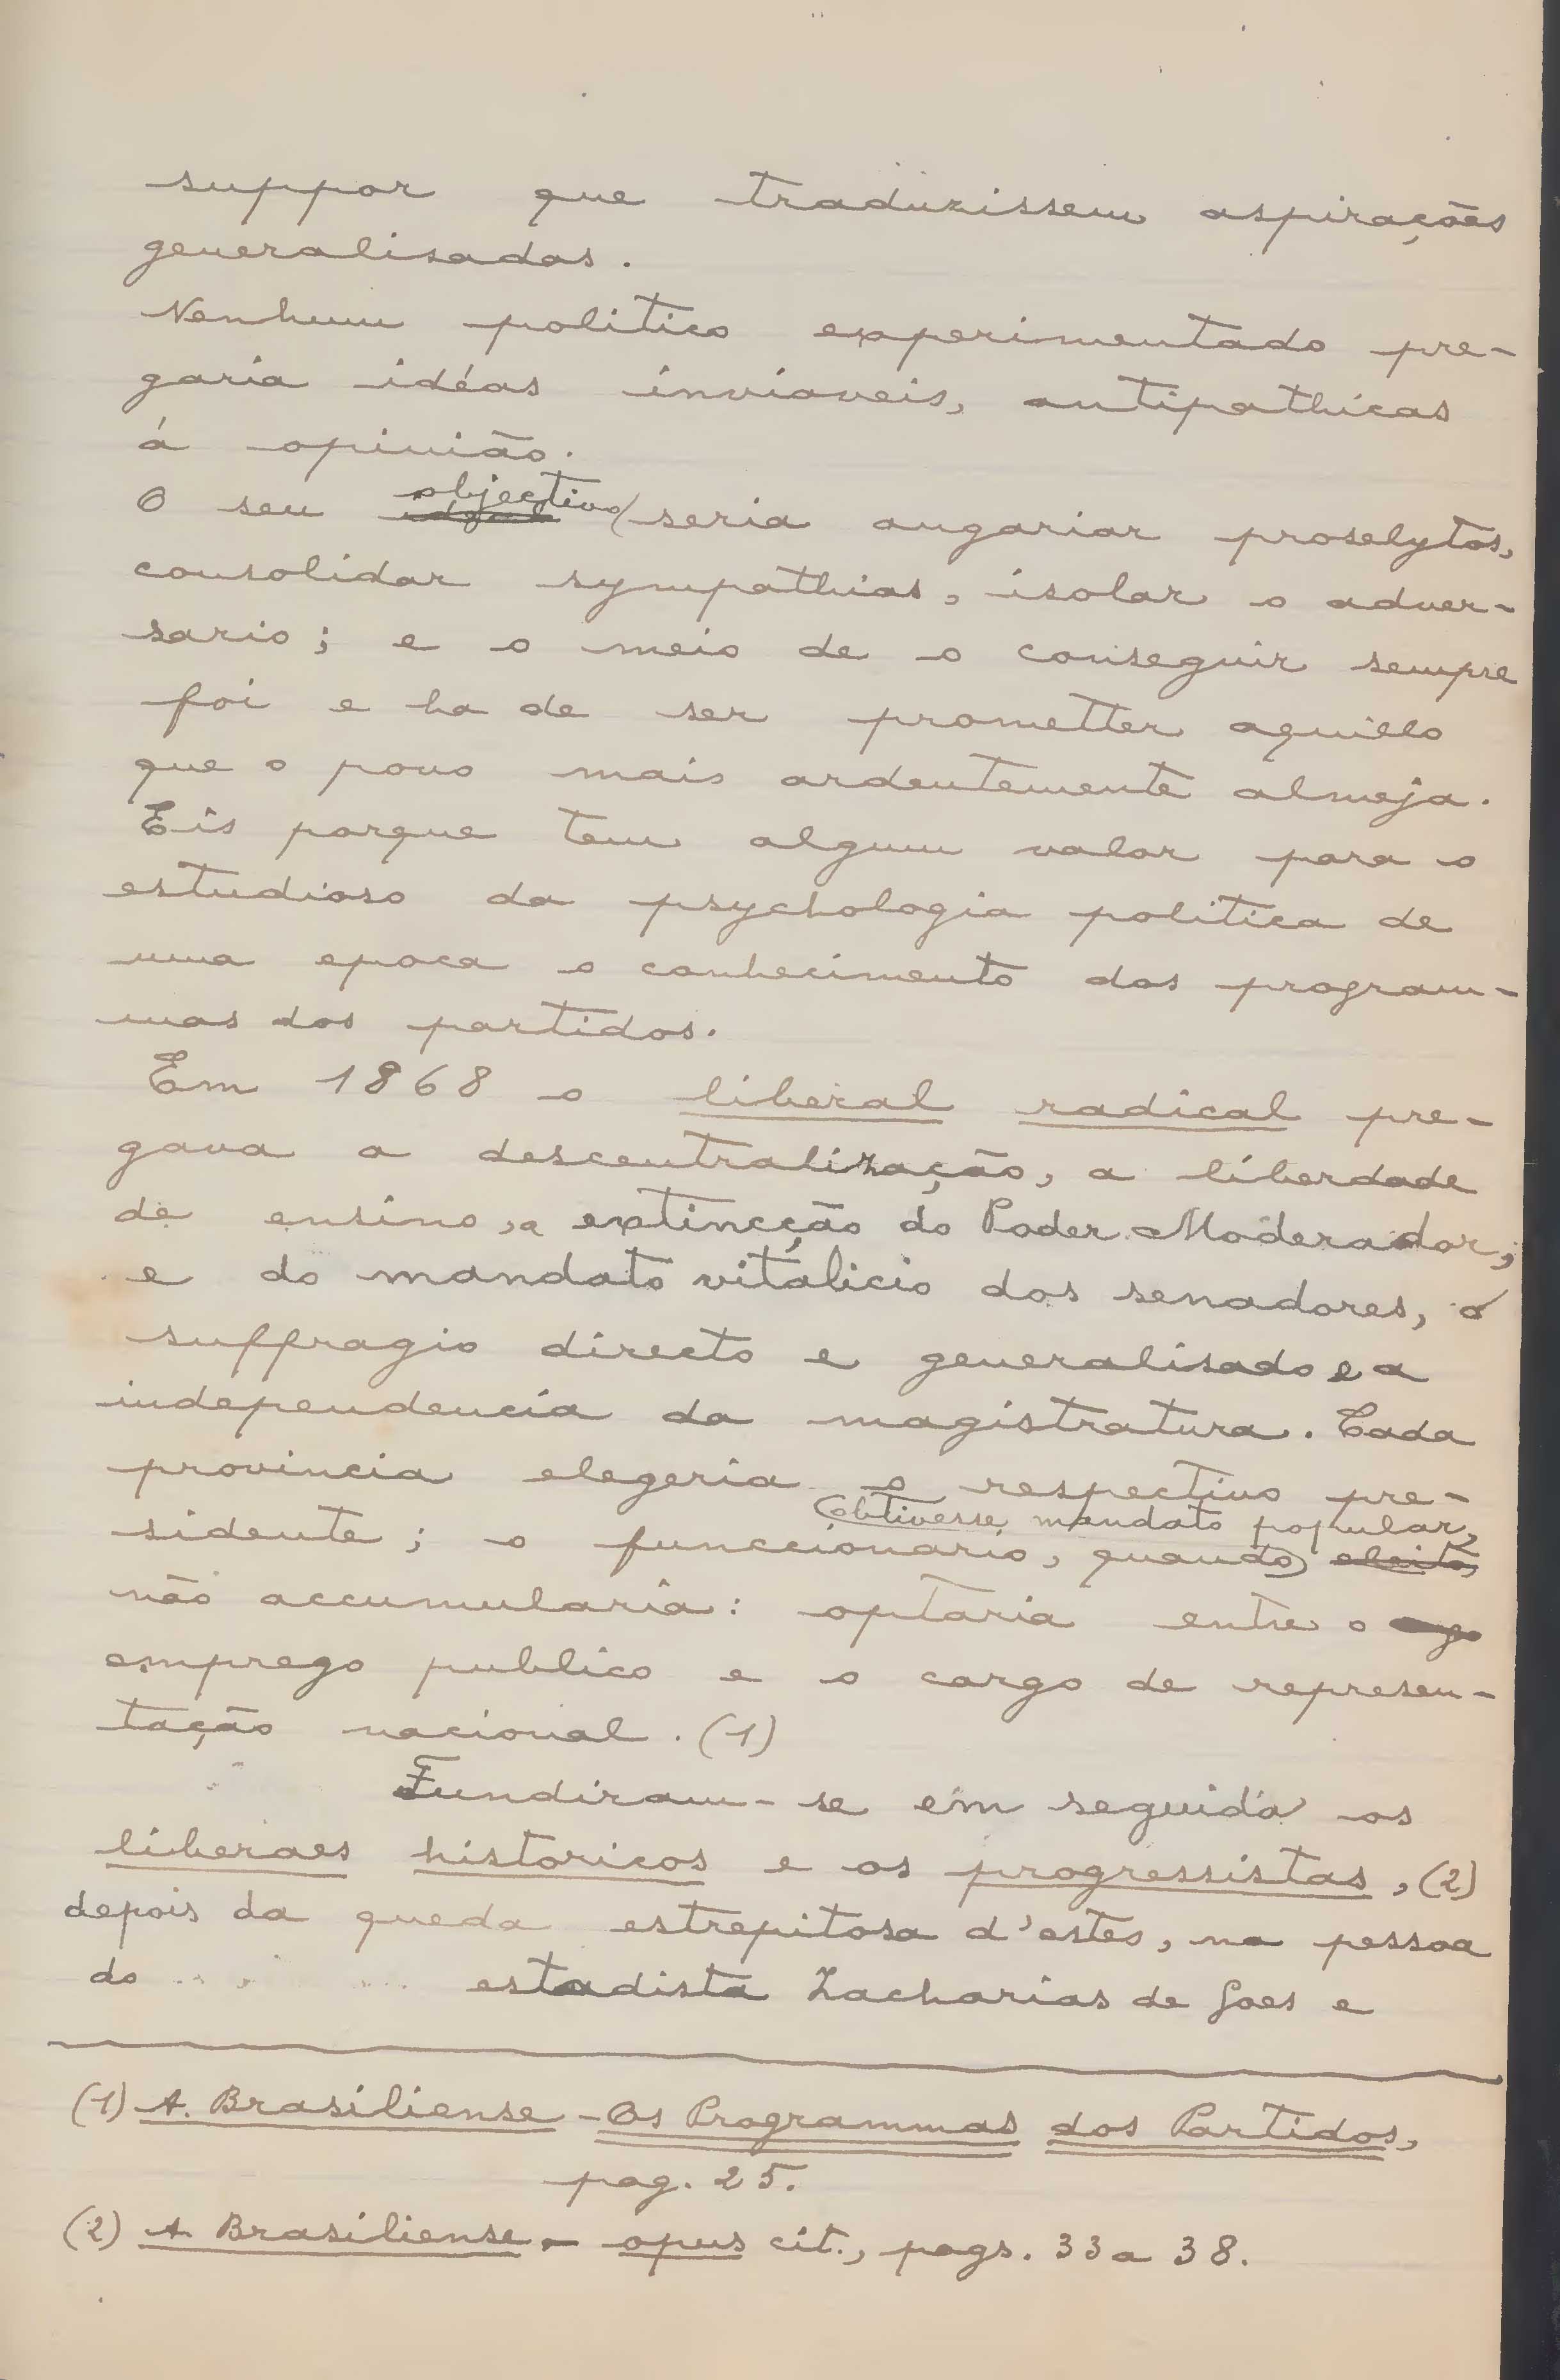 suppor que traduzissem aspirações
generalisadas.
Nenhum politico experimentado pre-
garia idéas inviaveis, antipathicas
á opinião.
O seu ideal objectivo seria angariar proselytos,
consolidar sympathias, isolar o adver-
sario; e o meio de o conseguir sempre
foi e ha de ser prometter aquillo
que o povo mais ardentemente almeja.
Eis porque tem algum valor para o
estudioso da psychologia politica de
uma epoca o conhecimento dos program-
mas dos partidos.
Em 1868 o liberal radical pre-
gava a descentralização, a liberdade
de ensino, a extincção do Poder Moderador,
e do mandato vitalicio dos senadores, o
suffragio directo e generalisado e a
independencia da magistratura. Cada
provincia elegeria o respectivo pre-
obtivesse mandato popular,
sidente; o funccionario, quando eleito,
não accumularia: optaria entre o
emprego publico e o cargo de represen-
tação nacional. (1)
Fundiram-se em seguida os
liberaes historicos e os progressistas, (2)
depois da queda estrepitosa d'estes, na pessoa
do estadista Zacharias de Goes e
(1) A. Brasiliense - Os Programmas dos Partidos,
pag. 25.
(2) A. Brasiliense - opus cit., pags. 33 a 38.